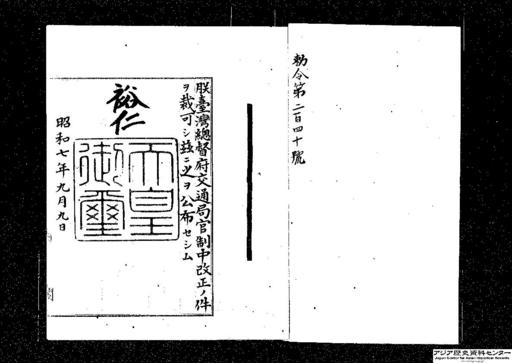 勅令第二百四十號
朕臺灣總督府交通局官制中改正ノ件
ヲ裁可シ玆ニ之ヲ公布セシム
裕仁
天皇
御璽
昭和七年九月九日
アジア歴史資料センター
Japan Center for Asian Historical Records